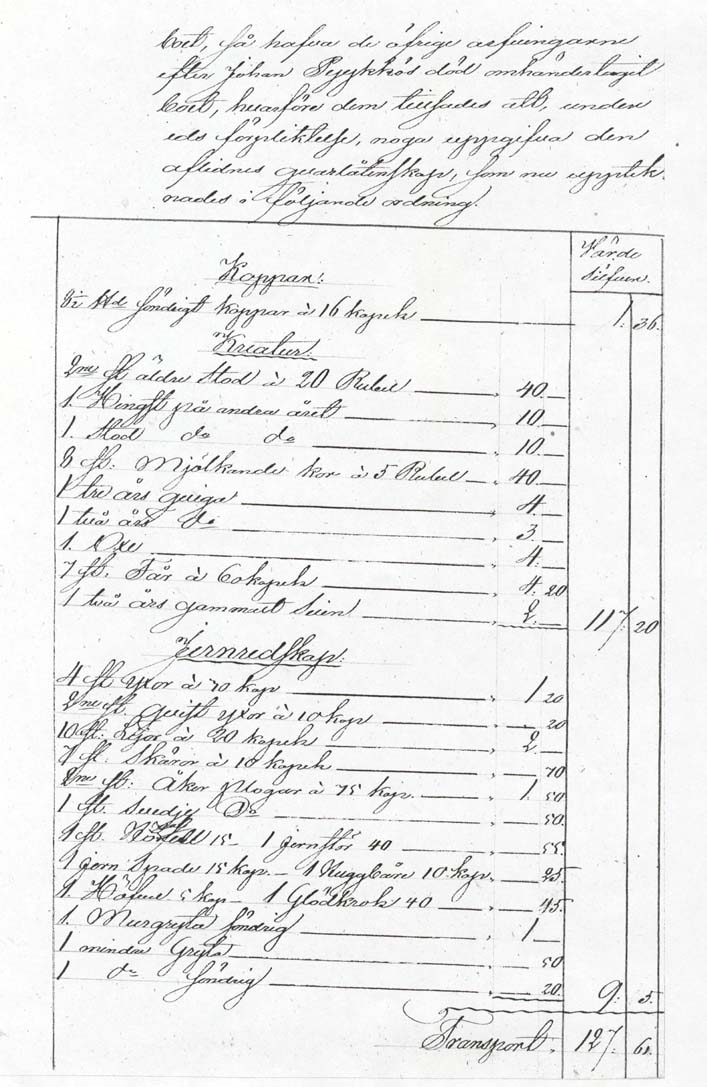 boet, så hafva de öfrige arfvingarne
efter Johan död omhändertagit
boet, hvarföre dem tillsades att, under
eds förpliktelse, noga uppgifva den
aflidnes qvarlåtenskap, som nu upptek-
nades i följande ordning.
Värde
Silfver.
Koppar:
8½ söndrigt koppar à 16 kopek 1. 36.
Kreatur:
2ne st äldre Stod à 20 Rubel " 40.—
1. Hingst på andra året " 10.—
1. Stod do do " 10.—
8 st: Mjölkande kor à 5 Rubel " 40.—
1 tre års qviga " 4.—
1 två års do " 3.—
1. Oxe " 4.—
7 st. Får à 60 kopek " 4. 20
1 två års gammalt Svin " 2.— 117. 20
Jernredskap:
4 st yxor à 30 kop " 1 20
2ne st. qvist yxor à 10 kop " — 20
10 st: Lijor à 20 kopek " 2 —
7 st. Skäror à 10 kopek " — 70
2ne st: Åker plogar à 75 kop. " 1. 50
1 st. Svedje Do " — 50.
1 st. 15 – 1 jernstör 40 " — 55.
1 jern Spade 15 kop. – 1 10 kop. " — 25.
1. 5 kop – 1 Glödkrok 40 " — 45.
1. Murgryta söndrig " 1 —
1 mindre Gryta — 50
1 do söndrig " — 20. 9. 5.
Transport. 127. 61.